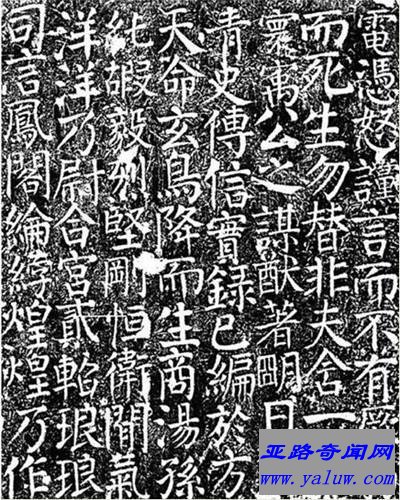 電憑怒讜言而不有
而死生勿替非夫含一
寰㝢公之謀猷著明日
青史傳信實録已編於方
天命玄鳥降而生商湯孫
純嘏毅烈堅剛恒衛間氣
洋洋乃尉合宮貳軺琅琅
司言鳳閣綸綍煌煌乃作
亚路奇闻网
www.yaluw.com